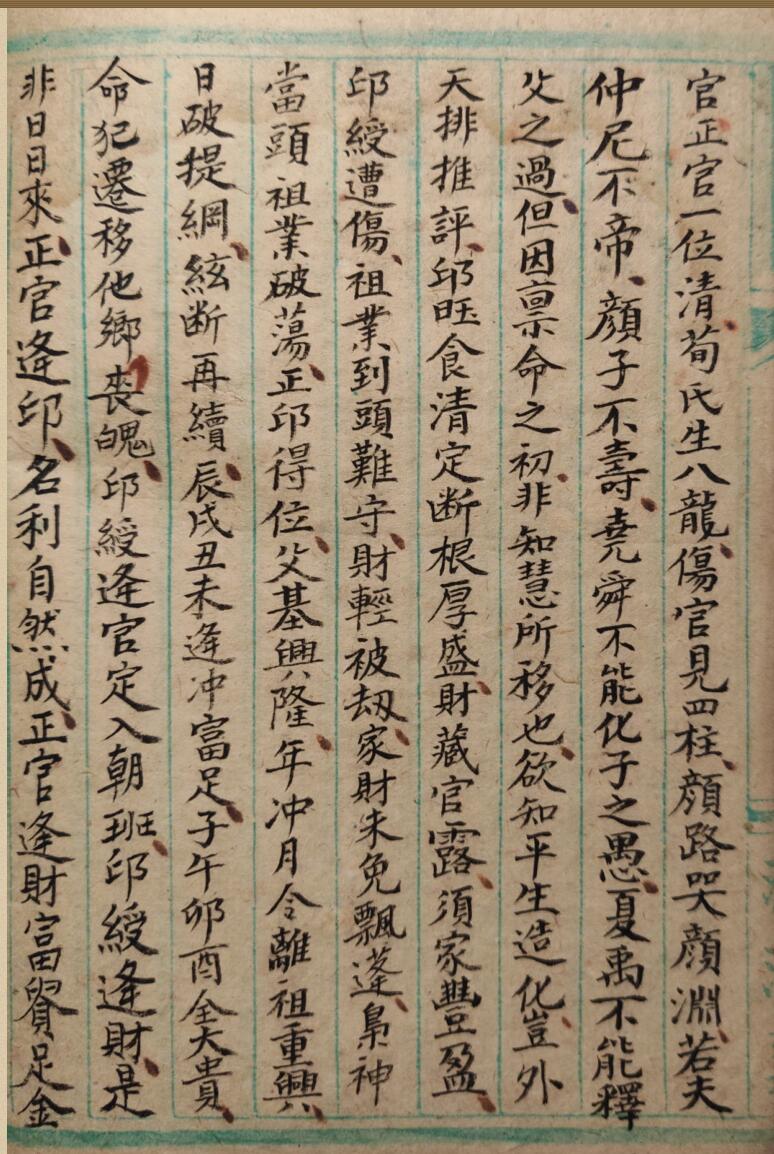 官正官一位清、荀氏生八龍、傷官見四柱、顔路哭顔淵、若夫
仲尼不帝、顔子不壽、堯舜不能化子之愚、夏禹不能釋
父之過、但因禀命之初、非知慧所移也、欲知平生造化、豈外
天排推評、印旺食清定断根厚盛、財藏官露、須家豊盈、
印綬遭傷、祖業到頭難守、財輕被刼、家財未免飄蓬、梟神
當頭祖業破蕩、正印得位、父基興隆、年冲月令離祖重興、
日破提綱、絃断再續、辰戌丑未逢冲富足、子午卯酉全大貴、
命犯遷移他鄉喪魄、印綬逢官定入朝班、印綬逢財、是
非日日來、正官逢印、名利自然成、正官逢財富貴足金